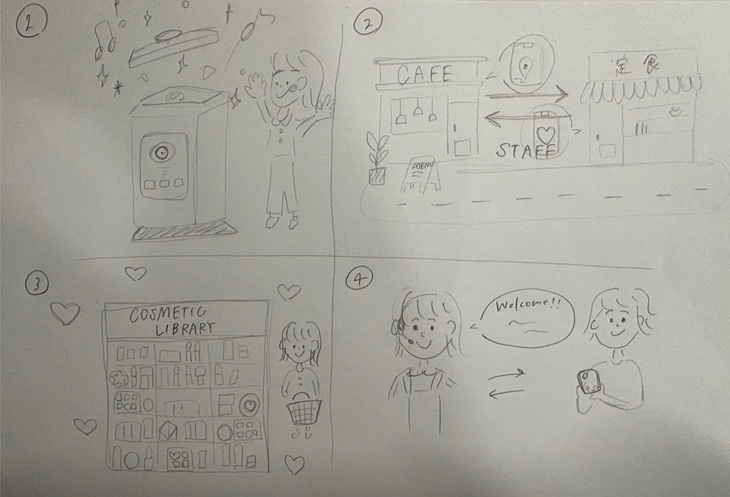 1
2
CAFE
定食
STAFF
MENU
3
COSMETIC
LIBRARY
4
Welcome!!